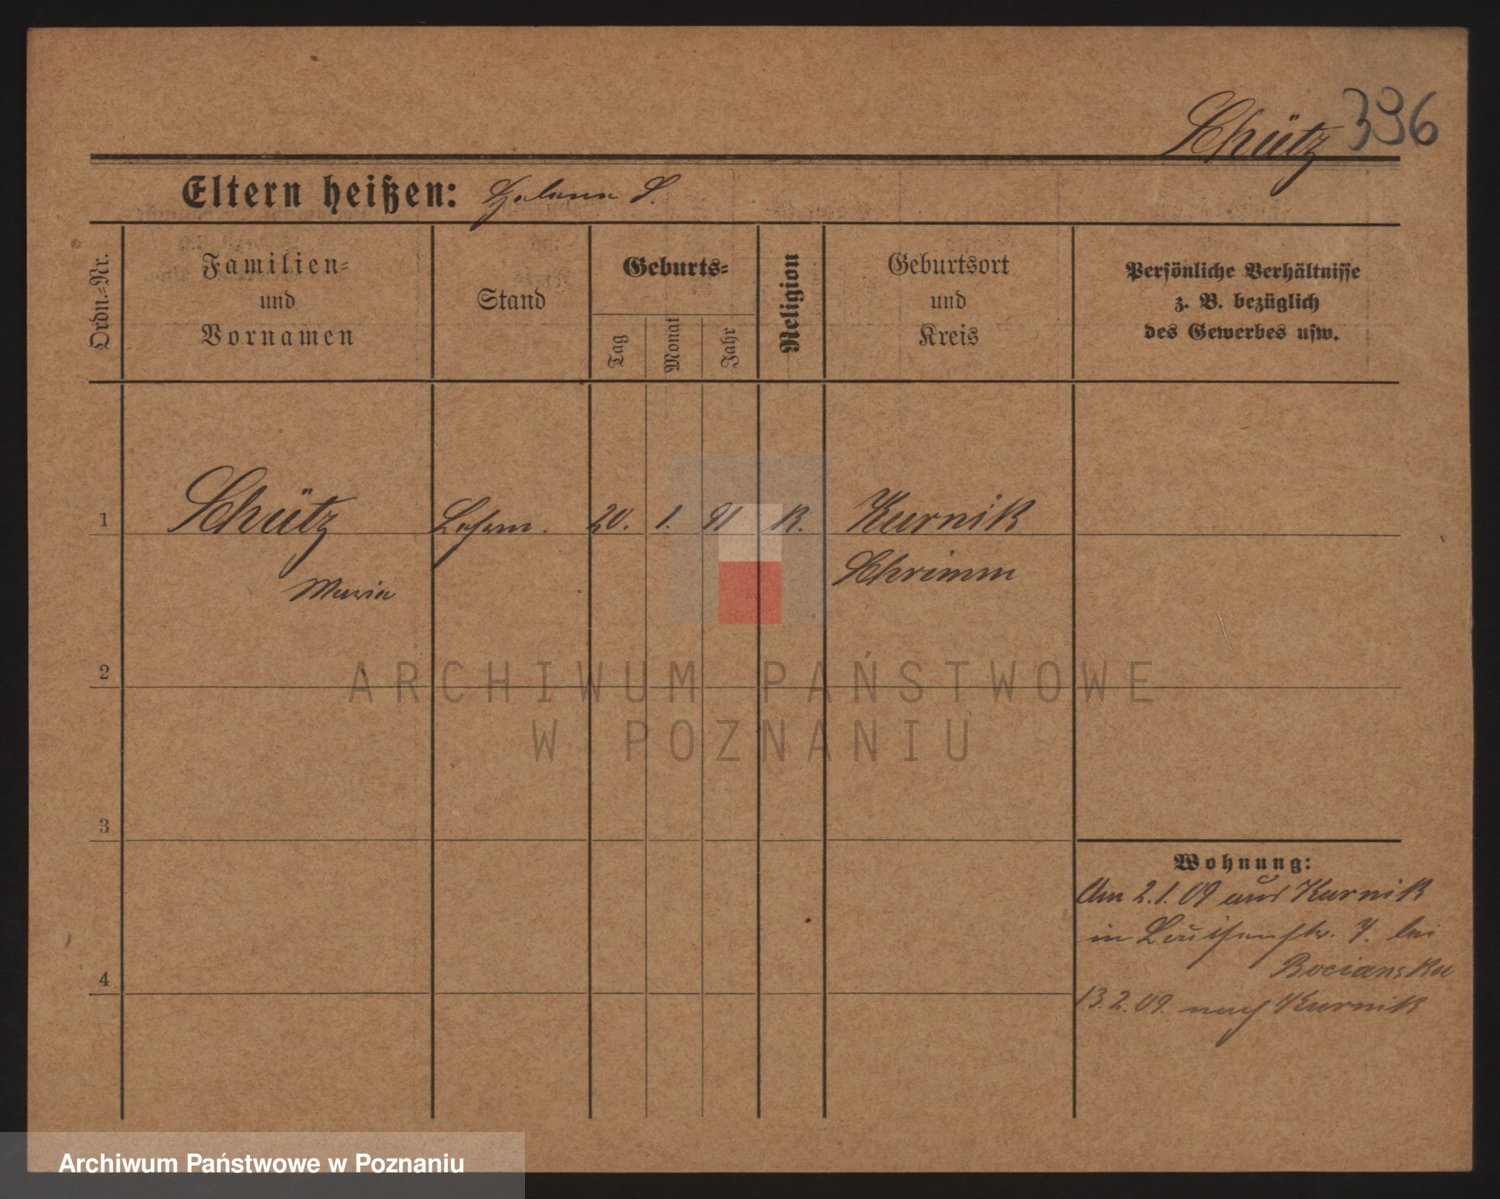 Schütz 396
Eltern heißen: Helena S.
Ordn.=Nr.
Familien=
und
Vornamen
Stand
Geburts=
Tag
Monat
Jahr
Religion
Geburtsort
und
Kreis
Persönliche Verhältnisse
z. B. bezüglich
des Gewerbes usw.
1 Schütz 20. 1. 91 K. Kurnik
Maria Schrimm
2
ARCHIWUM PAŃSTWOWE
W POZNANIU
3
Wohnung:
Am 2.1.09 aus Kurnik
in Louisenstr. 7. bei
4
13.2.09. nach Kurnik
Archiwum Państwowe w Poznaniu